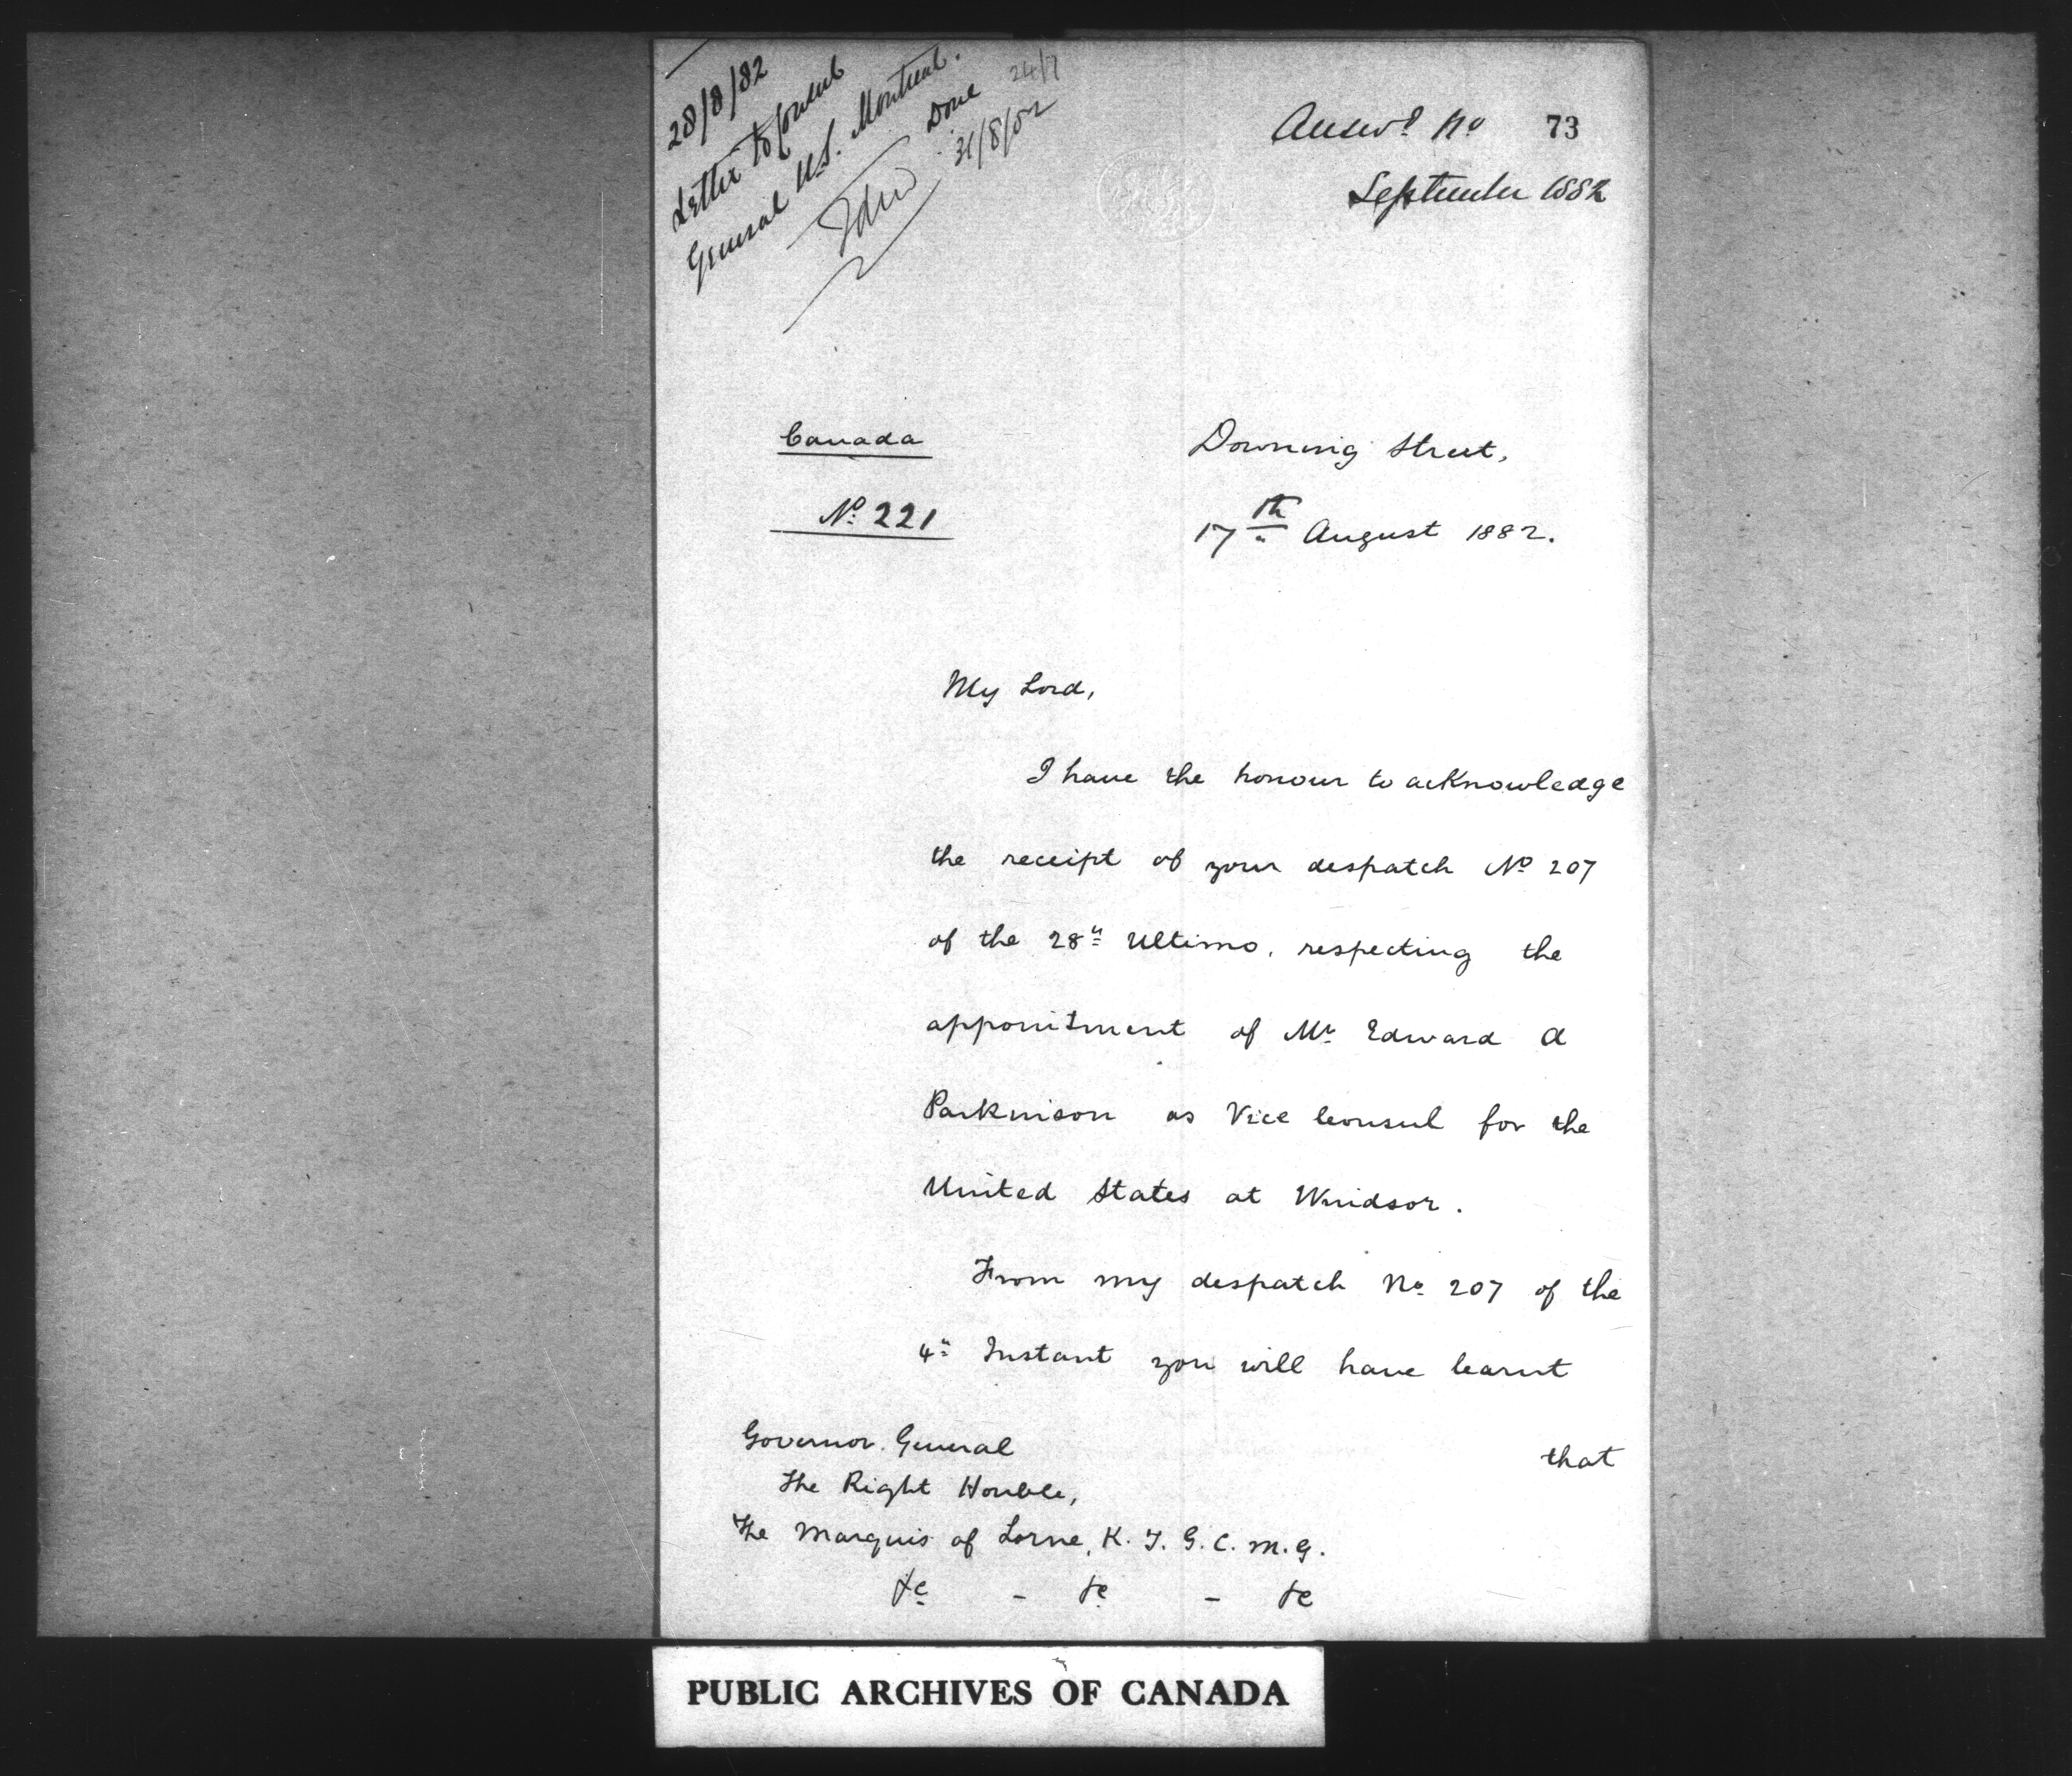 28/8/82
Letter to Consul
General U.S. Montreal.
Done
31/8/82
24/7
Answd No 73
September 1882
Canada
No 221
Downing Street,
17th August 1882.
My Lord,
I have the honour to acknowledge
the receipt of your despatch No 207
of the 28th Ultimo, respecting the
appointment of Mr Edward A
Parkinson as Vice Consul for the
United States at Windsor.
From my despatch No 207 of the
4th Instant you will have learnt
that
Governor General
The Right Honble,
The Marquis of Lorne, K.T. G.C.M.G.
&c - &c - &c
PUBLIC ARCHIVES OF CANADA